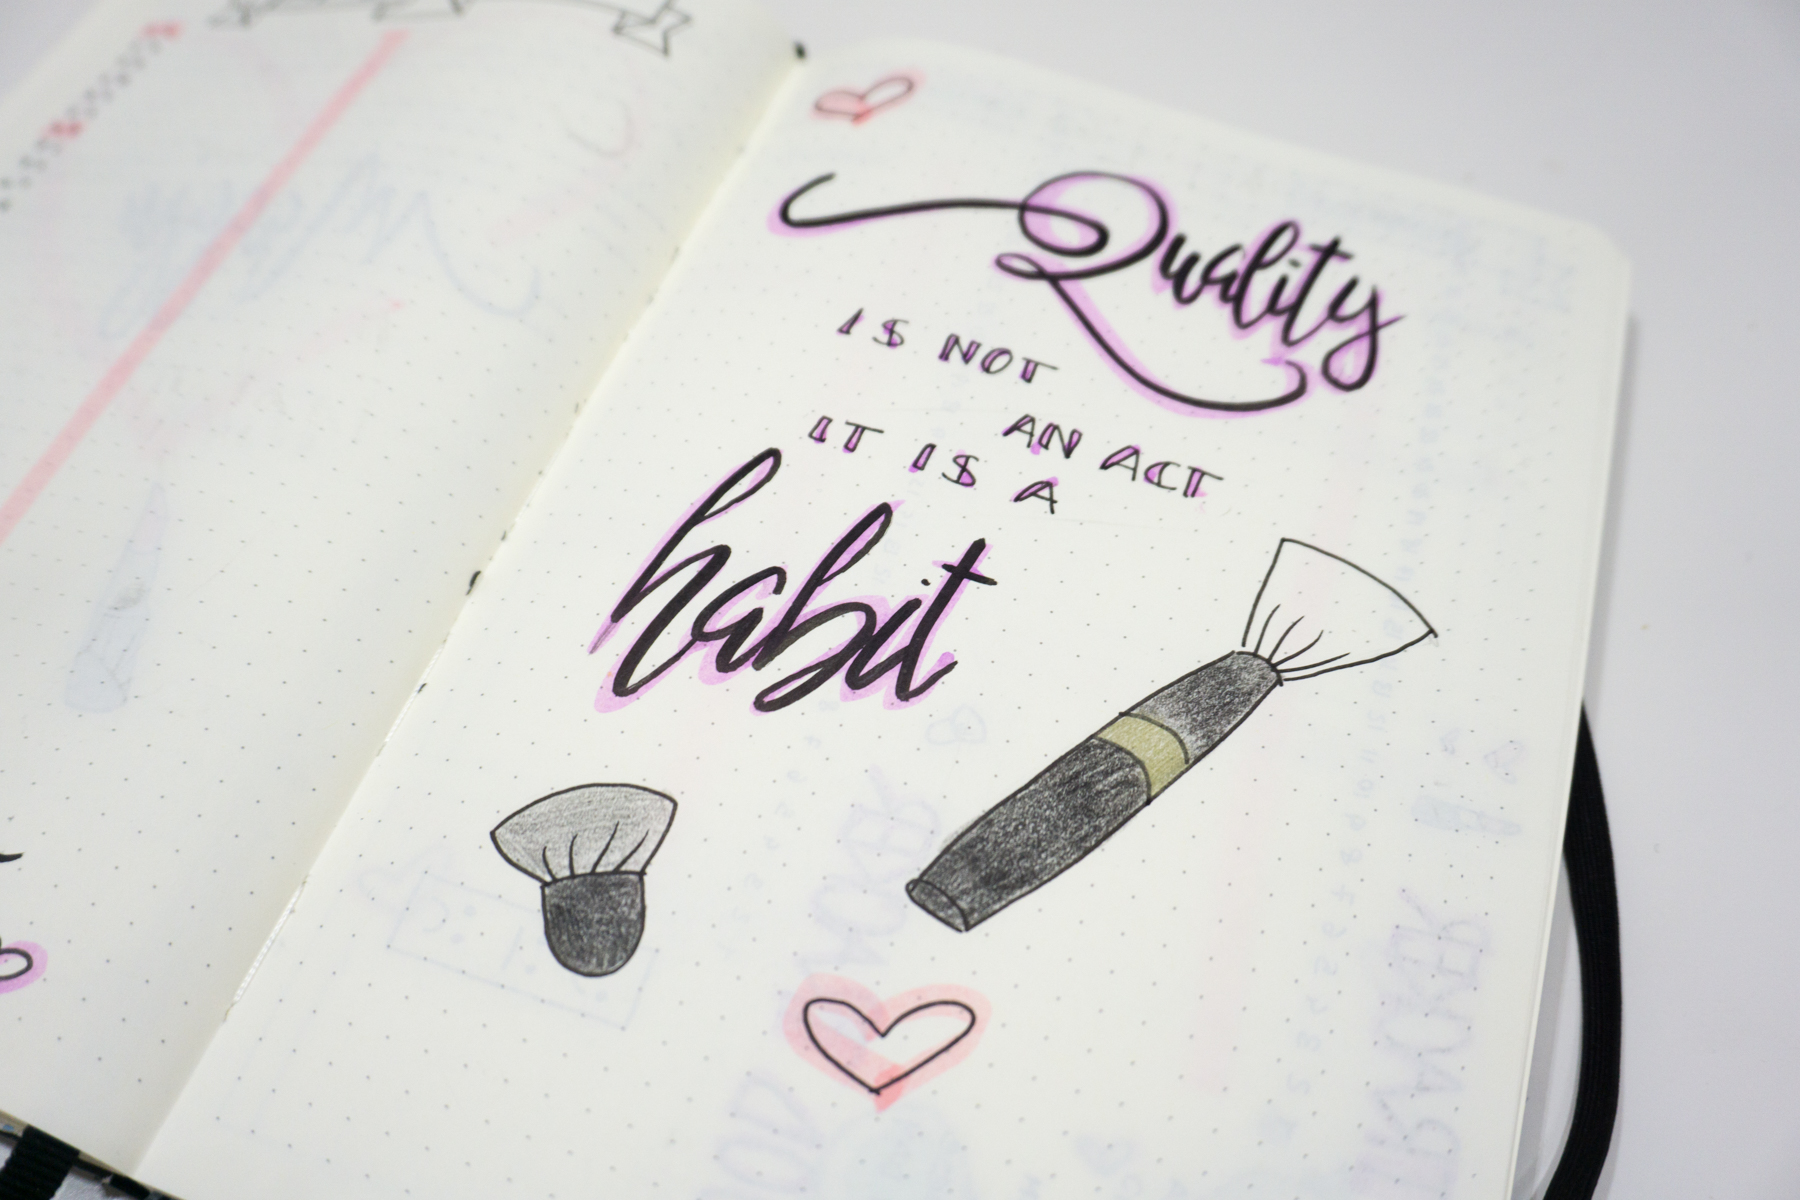 Quality
IS NOT
AN ACT
IT IS A
habit